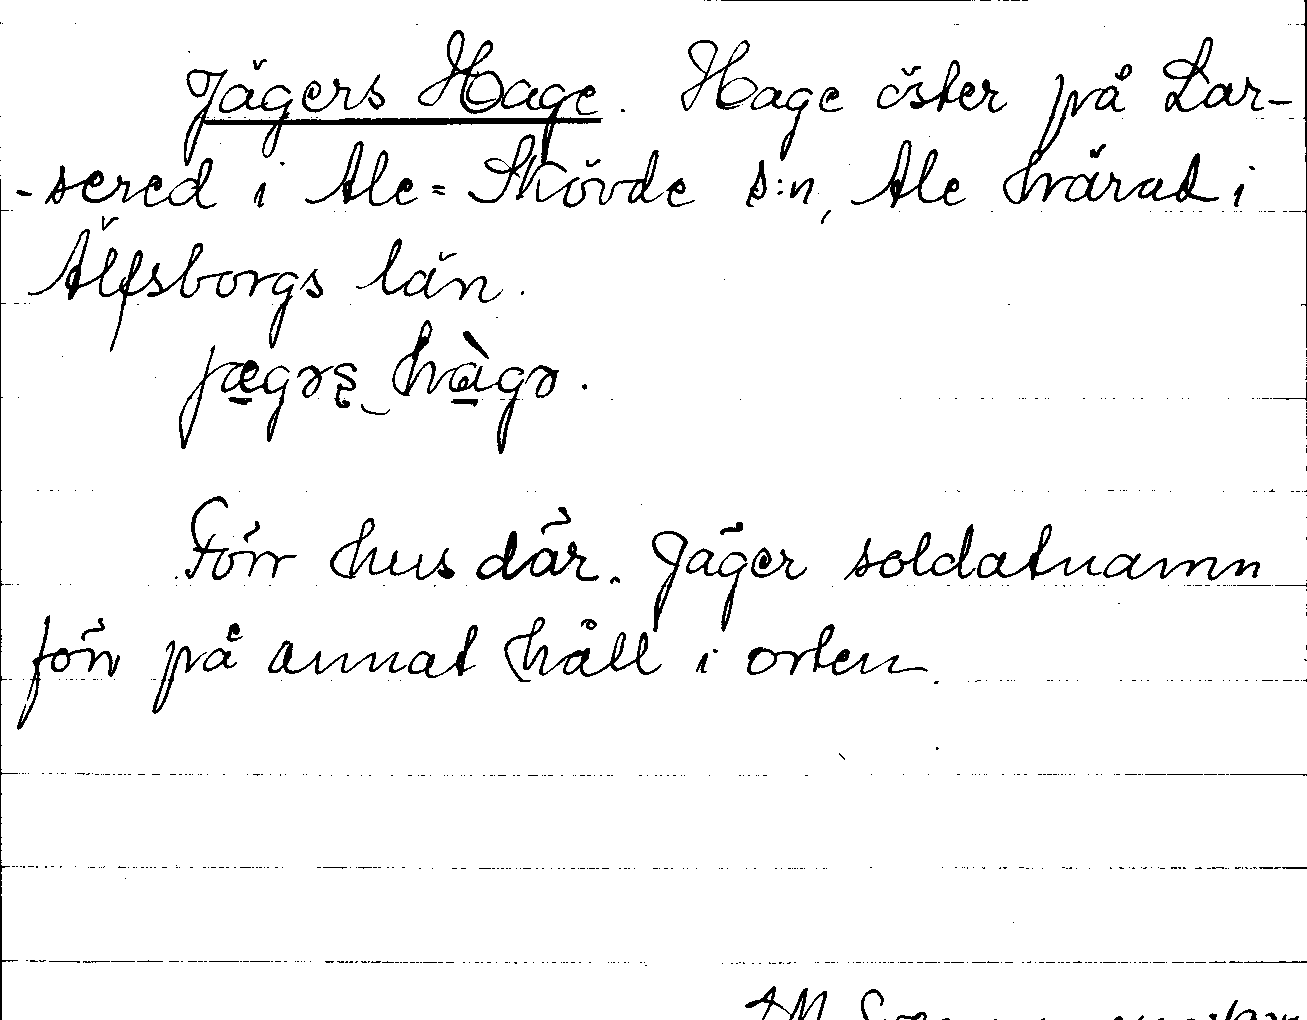 Jägers Hage. Hage öster på Lar-
-sered i Ale=Skövde s:n, Ale härad i
Älfsborgs län.
jægəꞩ hàgə.
Förr hus där. Jäger soldatnamn
förr på annat håll i orten.